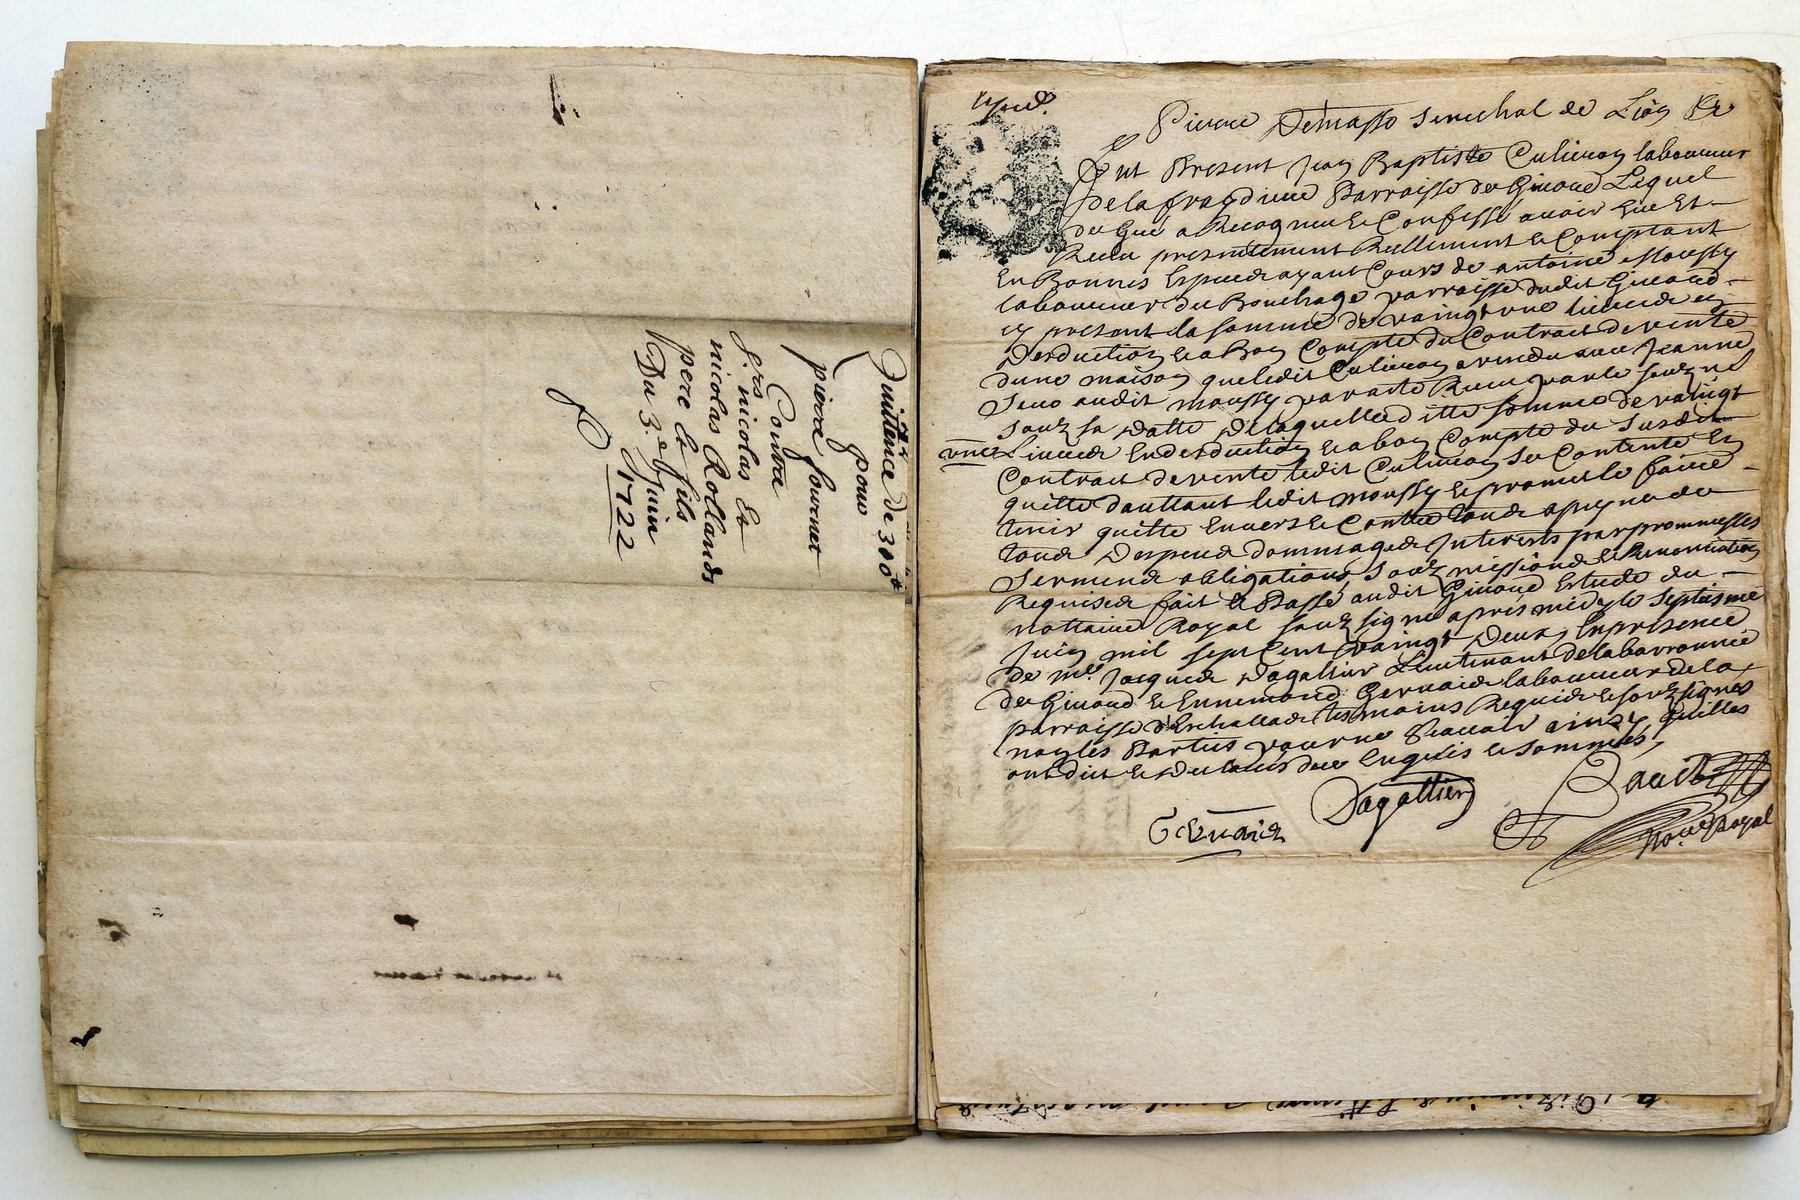 Quittence de 300
pour
pierre fournet
Contre
Srs. nicolas Et
nicolas Rollands
pere Et fils
Du 3e Juin
1722
Pierre Demasso Senechal de Lion &c
Fut Present Jean Baptiste Culieron laboureur
Parroisse de Givord Lequel
de Gré a Recogneu & Confessé avoir Eue Et
Receu presentement Reellement & Comptant
En Bonnes Especes ayant Cours de antoine Moussy
laboureur du Bouchage parroisse dudit Givord
icy present la somme de vaingt une livres en
Desduction & a Bon Compte du Contrait de vente
dune maison que ledit Culieron a vendu avec Jeanne
audit moussy par acte Receu par le souz ne
souz sa Datte De laquelle ditte somme de vaingt
une Livres En desduction & a bon Compte du Susdit
Contrait de vente ledit Culieron Se Contente Et
quitte dauttant ledit moussy & promet le faire
tenir quitte Envers & Contre tous a peyne de
tous Despens dommages Interests par prommesses
Serments obligations, Souzmissions & Renonciations
Requises fait & Passé audit Givord Estude du
nottaire Royal souzsigné apres midy le Septiesme
Juin mil sept Cent vaingt Deux, En presence
de me. Jacques Dagallier Lieutenant de la barronnie
de Givord & Ennemond Gervais laboureur de la
parroisse d'Eschallas tesmoins Requis & souzsignes
non les Parties pour ne Scavoir ainsy quilles
ont dit & De lavoir faire Enquis & Sommées,
Gervais
Dagallier
no.re Royal